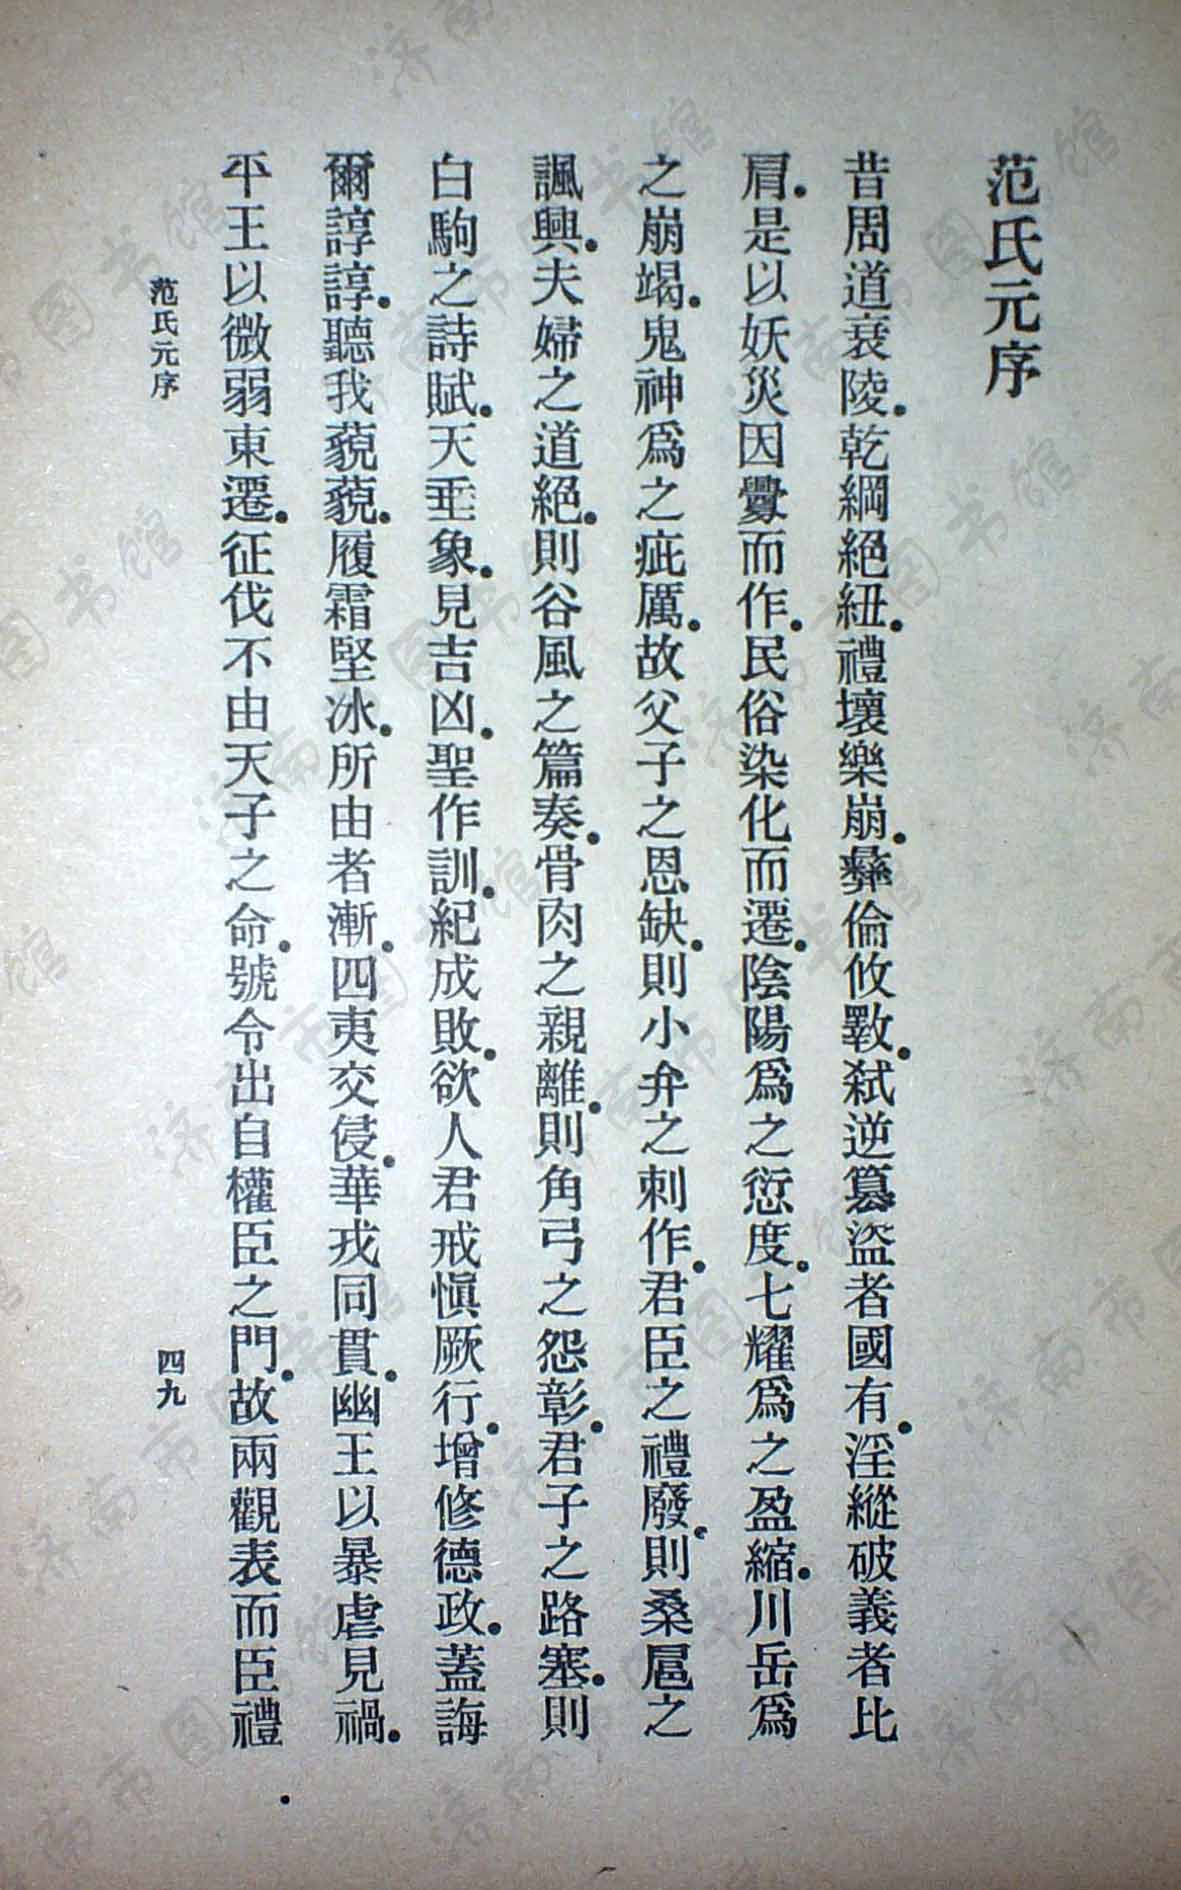 范氏元序
昔周道衰陵.乾綱絕紐.禮壞樂崩.彝倫攸斁.弒逆篡盜者國有.淫縱破義者比
肩.是以妖災因釁而作.民俗染化而遷.陰陽爲之愆度.七耀爲之盈縮.川岳爲
之崩竭.鬼神爲之疵厲.故父子之恩缺.則小弁之刺作.君臣之禮廢.則桑扈之
諷興.夫婦之道絕.則谷風之篇奏.骨肉之親離.則角弓之怨彰.君子之路塞.則
白駒之詩賦.天垂象.見吉凶.聖作訓.紀成敗.欲人君戒愼厥行.增修德政.蓋誨
爾諄諄.聽我藐藐.履霜堅冰.所由者漸.四夷交侵.華戎同貫.幽王以暴虐見禍.
平王以微弱東遷.征伐不由天子之命.號令出自權臣之門.故兩觀表而臣禮
范氏元序
四九
济南市图书馆